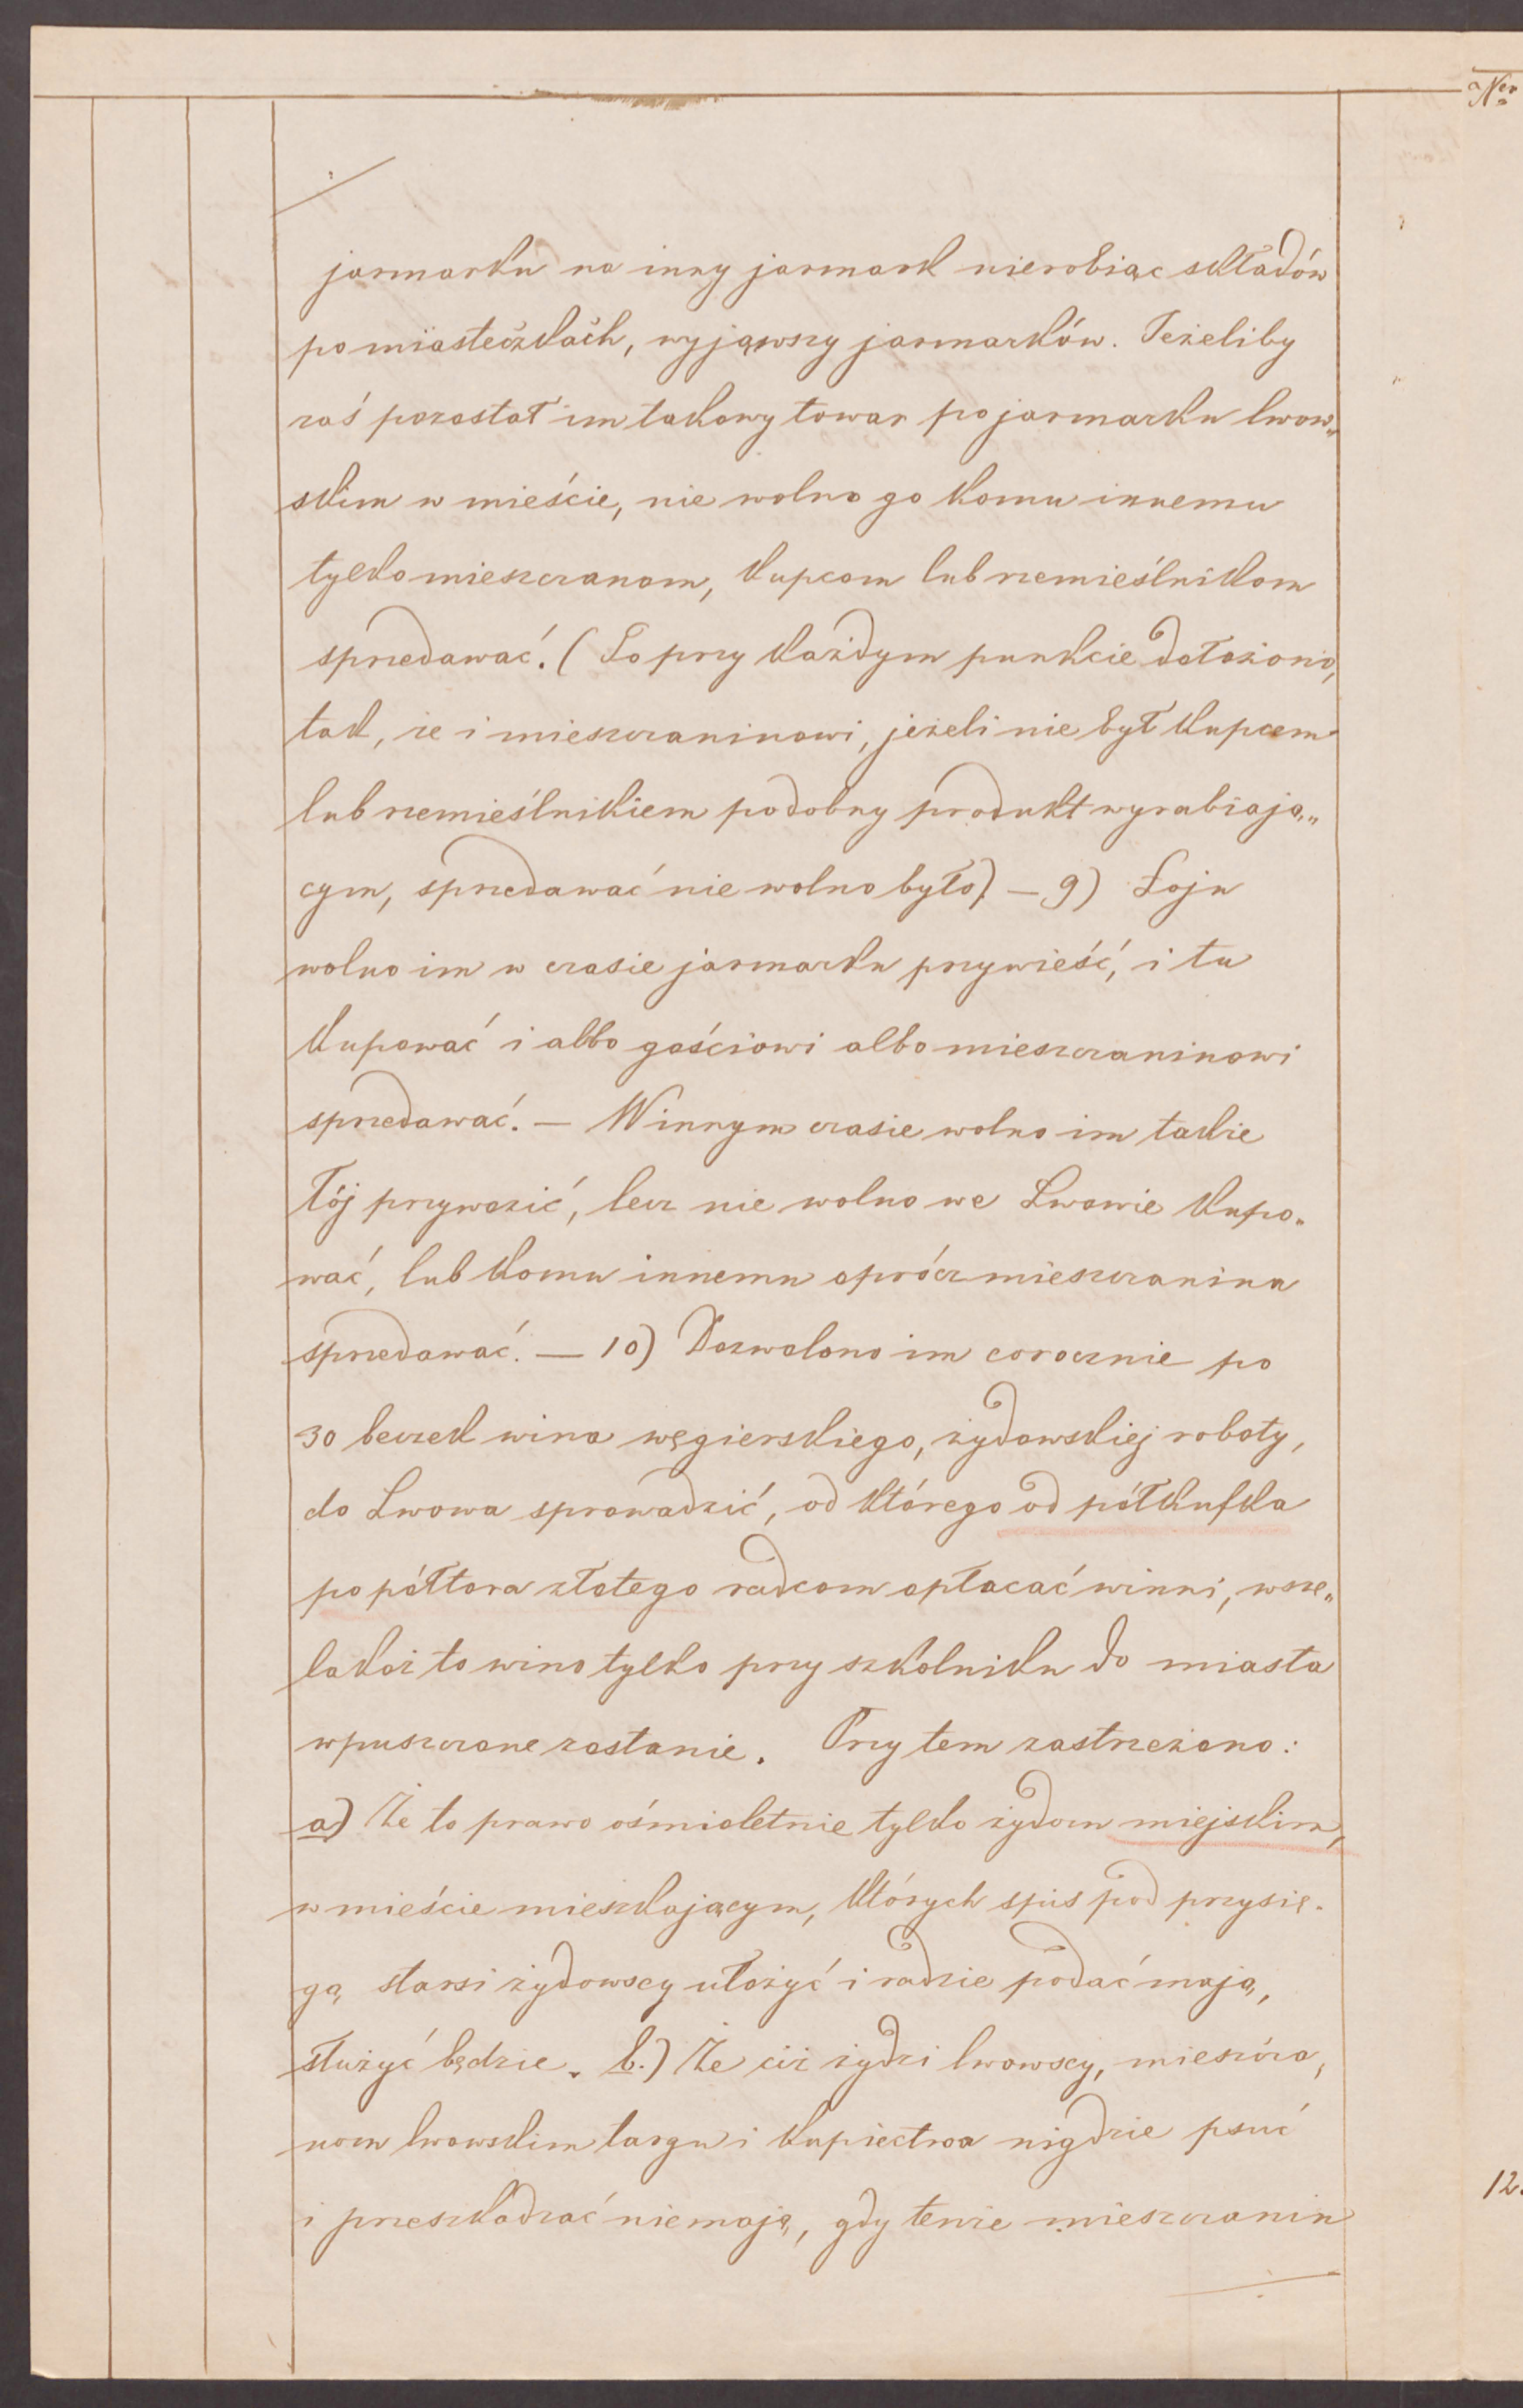 Nro
jarmarku na inny jarmark nierobiąc składów
po miasteczkach, wyjąwszy jarmarków. Jeżeliby
zaś pozostał im takowy towar po jarmarku lwow„
skim w mieście, nie wolno go komu innemu
tylko mieszczanom, kupcom lub rzemieślnikom
sprzedawać. (To przy każdym punkcie dołożono,
tak, że i mieszczaninowi, jeżeli nie był kupcem
lub rzemieślnikiem podobny produkt wyrabiają„
cym, sprzedawać nie wolno było) — 9) Łoju
wolno im w czasie jarmarku przywieść, i tu
kupować i albo gościowi albo mieszczaninowi
sprzedawać. — W innym czasie wolno im takie
łój przywozić, lecz nie wolno we Lwowie kupo„
wać, lub komu innemu oprócz mieszczanina
sprzedawać. — 10) Dozwolono im corocznie po
30 beczek wina węgierskiego, żydowskiej roboty,
do Lwowa sprowadzić, od którego od półkufka
po półtora złotego radcom opłacać winni, wsze„
lakoż to wino tylko przy szkolniku do miasta
wpuszczone zostanie. Przy tem zastrzeżono:
a) Że to prawo ośmioletnie tylko żydom miejskim,
w mieście mieszkającym, których spis pod przysię„
gą starsi żydowscy ułożyć i radzie podać mają,
służyć będzie. b.) Że ciż żydzi lwowscy, mieszcza„
nom lwowskim targu i kupiectwa nigdzie psuć
i przeszkadzać nie mają, gdy tenże mieszczanin
12.